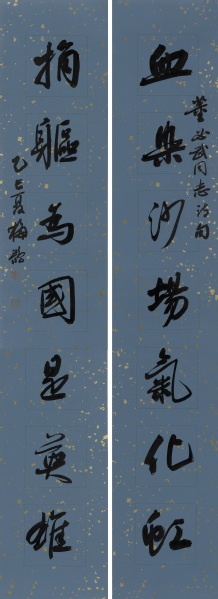 血染沙場氣化虹
董必武同志詩句
捐軀為國是英雄
乙巳夏